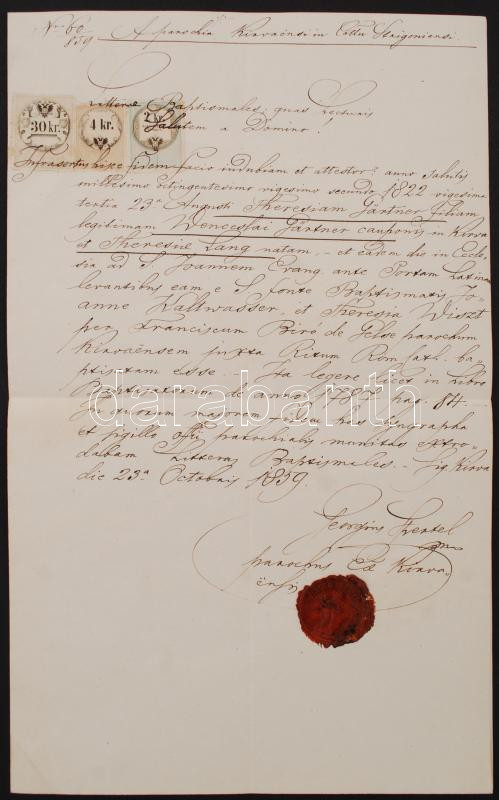 Nrus 60/859 A parochia Kirvaënsi in Cottu Strigoniensi.
Litterae Baptismales, quas lecturis
Salutem a Domino!
30 kr. 4 kr. 2 kr.
Infrascriptus hisce fidem facio indubiam et attestor: anno Salutis
millesimo octingentesimo vigesimo secundo 1822 vigesima
tertia 23a Augusti Theresiam Gärtner filiam
legitimam Wenceslai Gärtner cauponis in Kirva
et Theresiae Lang natam, - et eadem die in Eccle-
sia ad S. Joannem Evang. ante Portam Latinam
levantibus eam e S. fonte Baptismatis Jo-
anne Waltwasser, et Theresia Wiszt
per Franciscum Biró de Gelse parochum
Kirvaënsem juxta Ritum Rom. Cath. ba-
ptisatam esse. - Ita legere licet in libro
Baptisatorum de anno 1787 pag. 84. -
In quorum majorem fidem has chyrographo
et sigillo offii parochialis munitas extra-
dabam Litteras Baptismales. - Sig. Kirva
die 23a Octobris 1859.
Georgius Hertel
mp
parochus Kirva-
ënsis
darabanth